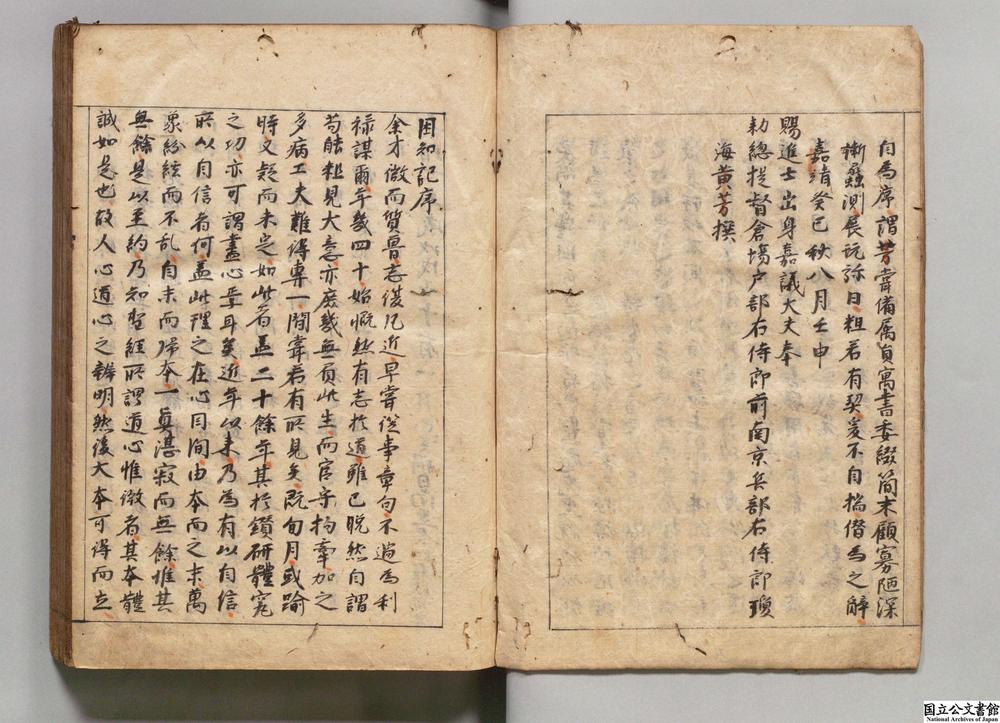 自為序謂芳嘗備属負寓書委綴簡末顧寡陋深
慚蠡測展玩弥日粗若有契爰不自揣僣為之辭
嘉靖癸巳秋八月壬申
賜進士出身嘉議大夫奉
勅總提督倉塲户部右侍郎前南京兵部右侍郎瓊
海黄芳撰
困知記序
余才微而質魯志復凡近早嘗從事章句不過為利
禄謀爾年幾四十始慨然有志於道雖已晚然自謂
苟能粗見大意亦庶幾無負此生而官守拘牽加之
多病工夫難得專一間嘗若有所見矣既旬月或踰
時又疑而未定如此者盖二十餘年其於鑽研體究
之功亦可謂盡心焉耳矣近年以来乃為有以自信
所以自信者何盖此理之在心目間由本而之末萬
象紛紜而不乱自末而歸本一真湛寂而無餘惟其
無餘是以至約乃知聖經所謂道心惟微者其本體
誠如是也故人心道心之辨明然後大本可得而立
国立公文書館
National Archives of Japan